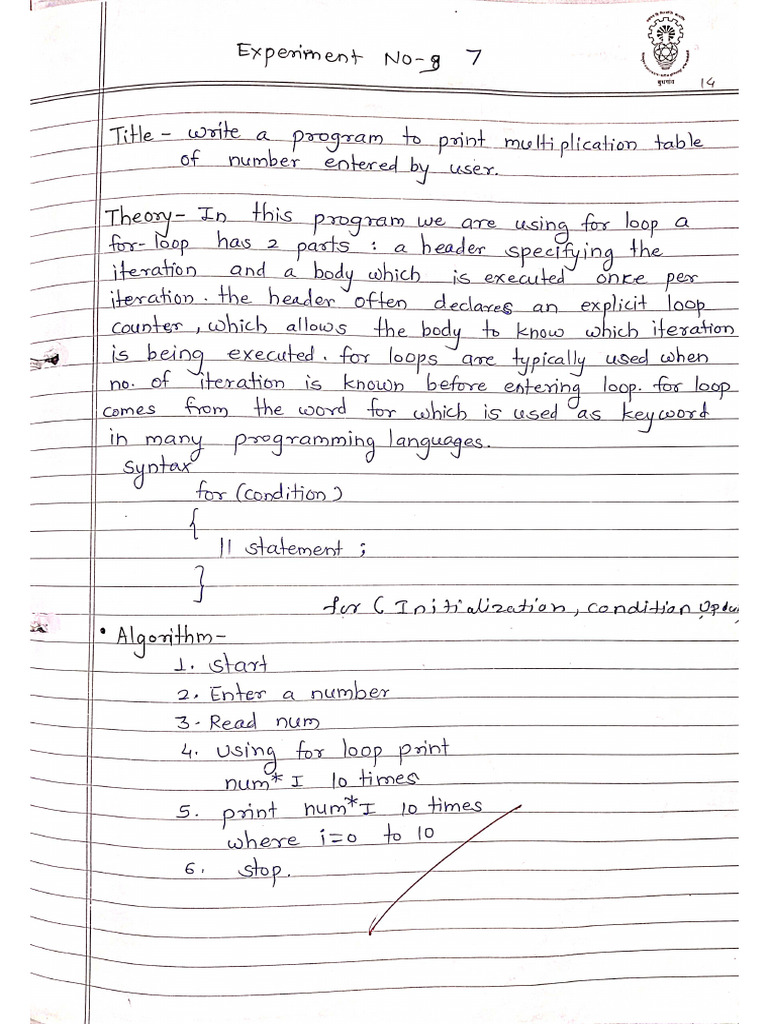 Experiment No-8 7
बुधगांव
14
Title - Write a program to print multiplication table
of number entered by user.
Theory - In this program we are using for loop a
for-loop has 2 parts : a header specifying the
iteration and a body which is executed once per
iteration. the header often declares an explicit loop
counter, which allows the body to know which iteration
is being executed. for loops are typically used when
no. of iteration is known before entering loop. for loop
comes from the word for which is used as keyword
in many programming languages.
Syntax
for (condition)
{
|| statement ;
}
for ( Initialization, condition
• Algorithm-
1. start
2. Enter a number
3. Read num
4. using for loop print
num* I 10 times
5. print num*I 10 times
where i=0 to 10
6. stop.